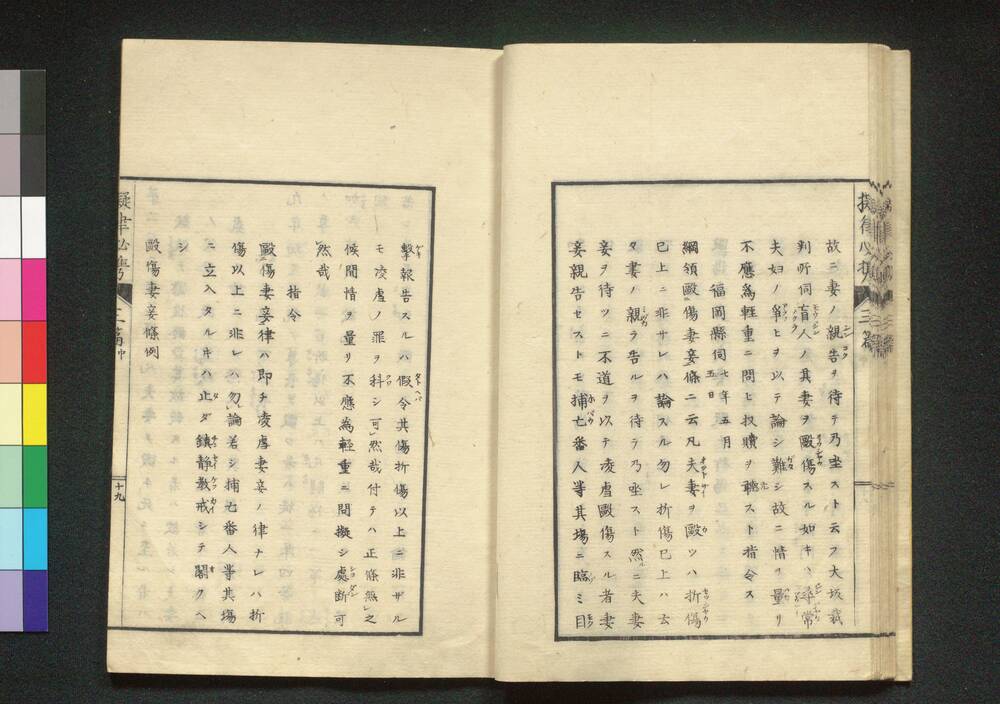 故ニ妻ノ親告ヲ待テ乃坐スト云フ大坂裁
判所伺盲人ノ其妻ヲ毆傷スル如キハ尋常
夫妇ノ爭ヒヲ以テ論シ難シ故ニ情ヲ量リ
不應爲輕重ニ問ヒ収贖ヲ聴スト指令ス
福岡縣伺七年五月五日
綱領毆傷妻妾條ニ云凡夫妻ヲ毆ツハ折傷
已上ニ非サレハ論スル勿レ折傷已上ハ云
々妻ノ親ラ告ルヲ待テ乃坐スト然ニ夫妻
妾ヲ待ツニ不道ヲ以テ凌虐毆傷スル者妻
妾親告セストモ捕亡番人等其場ニ臨ミ目
擊報告スルハ假令其傷折傷以上ニ非ザル
モ凌虐ノ罪ヲ科シ可然哉付テハ正條無之
候間情ヲ量リ不應為輕重ニ問擬シ處断可
然哉
指令
毆傷妻妾律ハ即チ凌虐妻妾ノ律ナレハ折
傷以上ニ非レハ勿論若シ捕亡番人等其場
ニ立入タルキハ止ダ鎮靜散戒シテ閣クヘ
シ
毆傷妻妾條例
十九